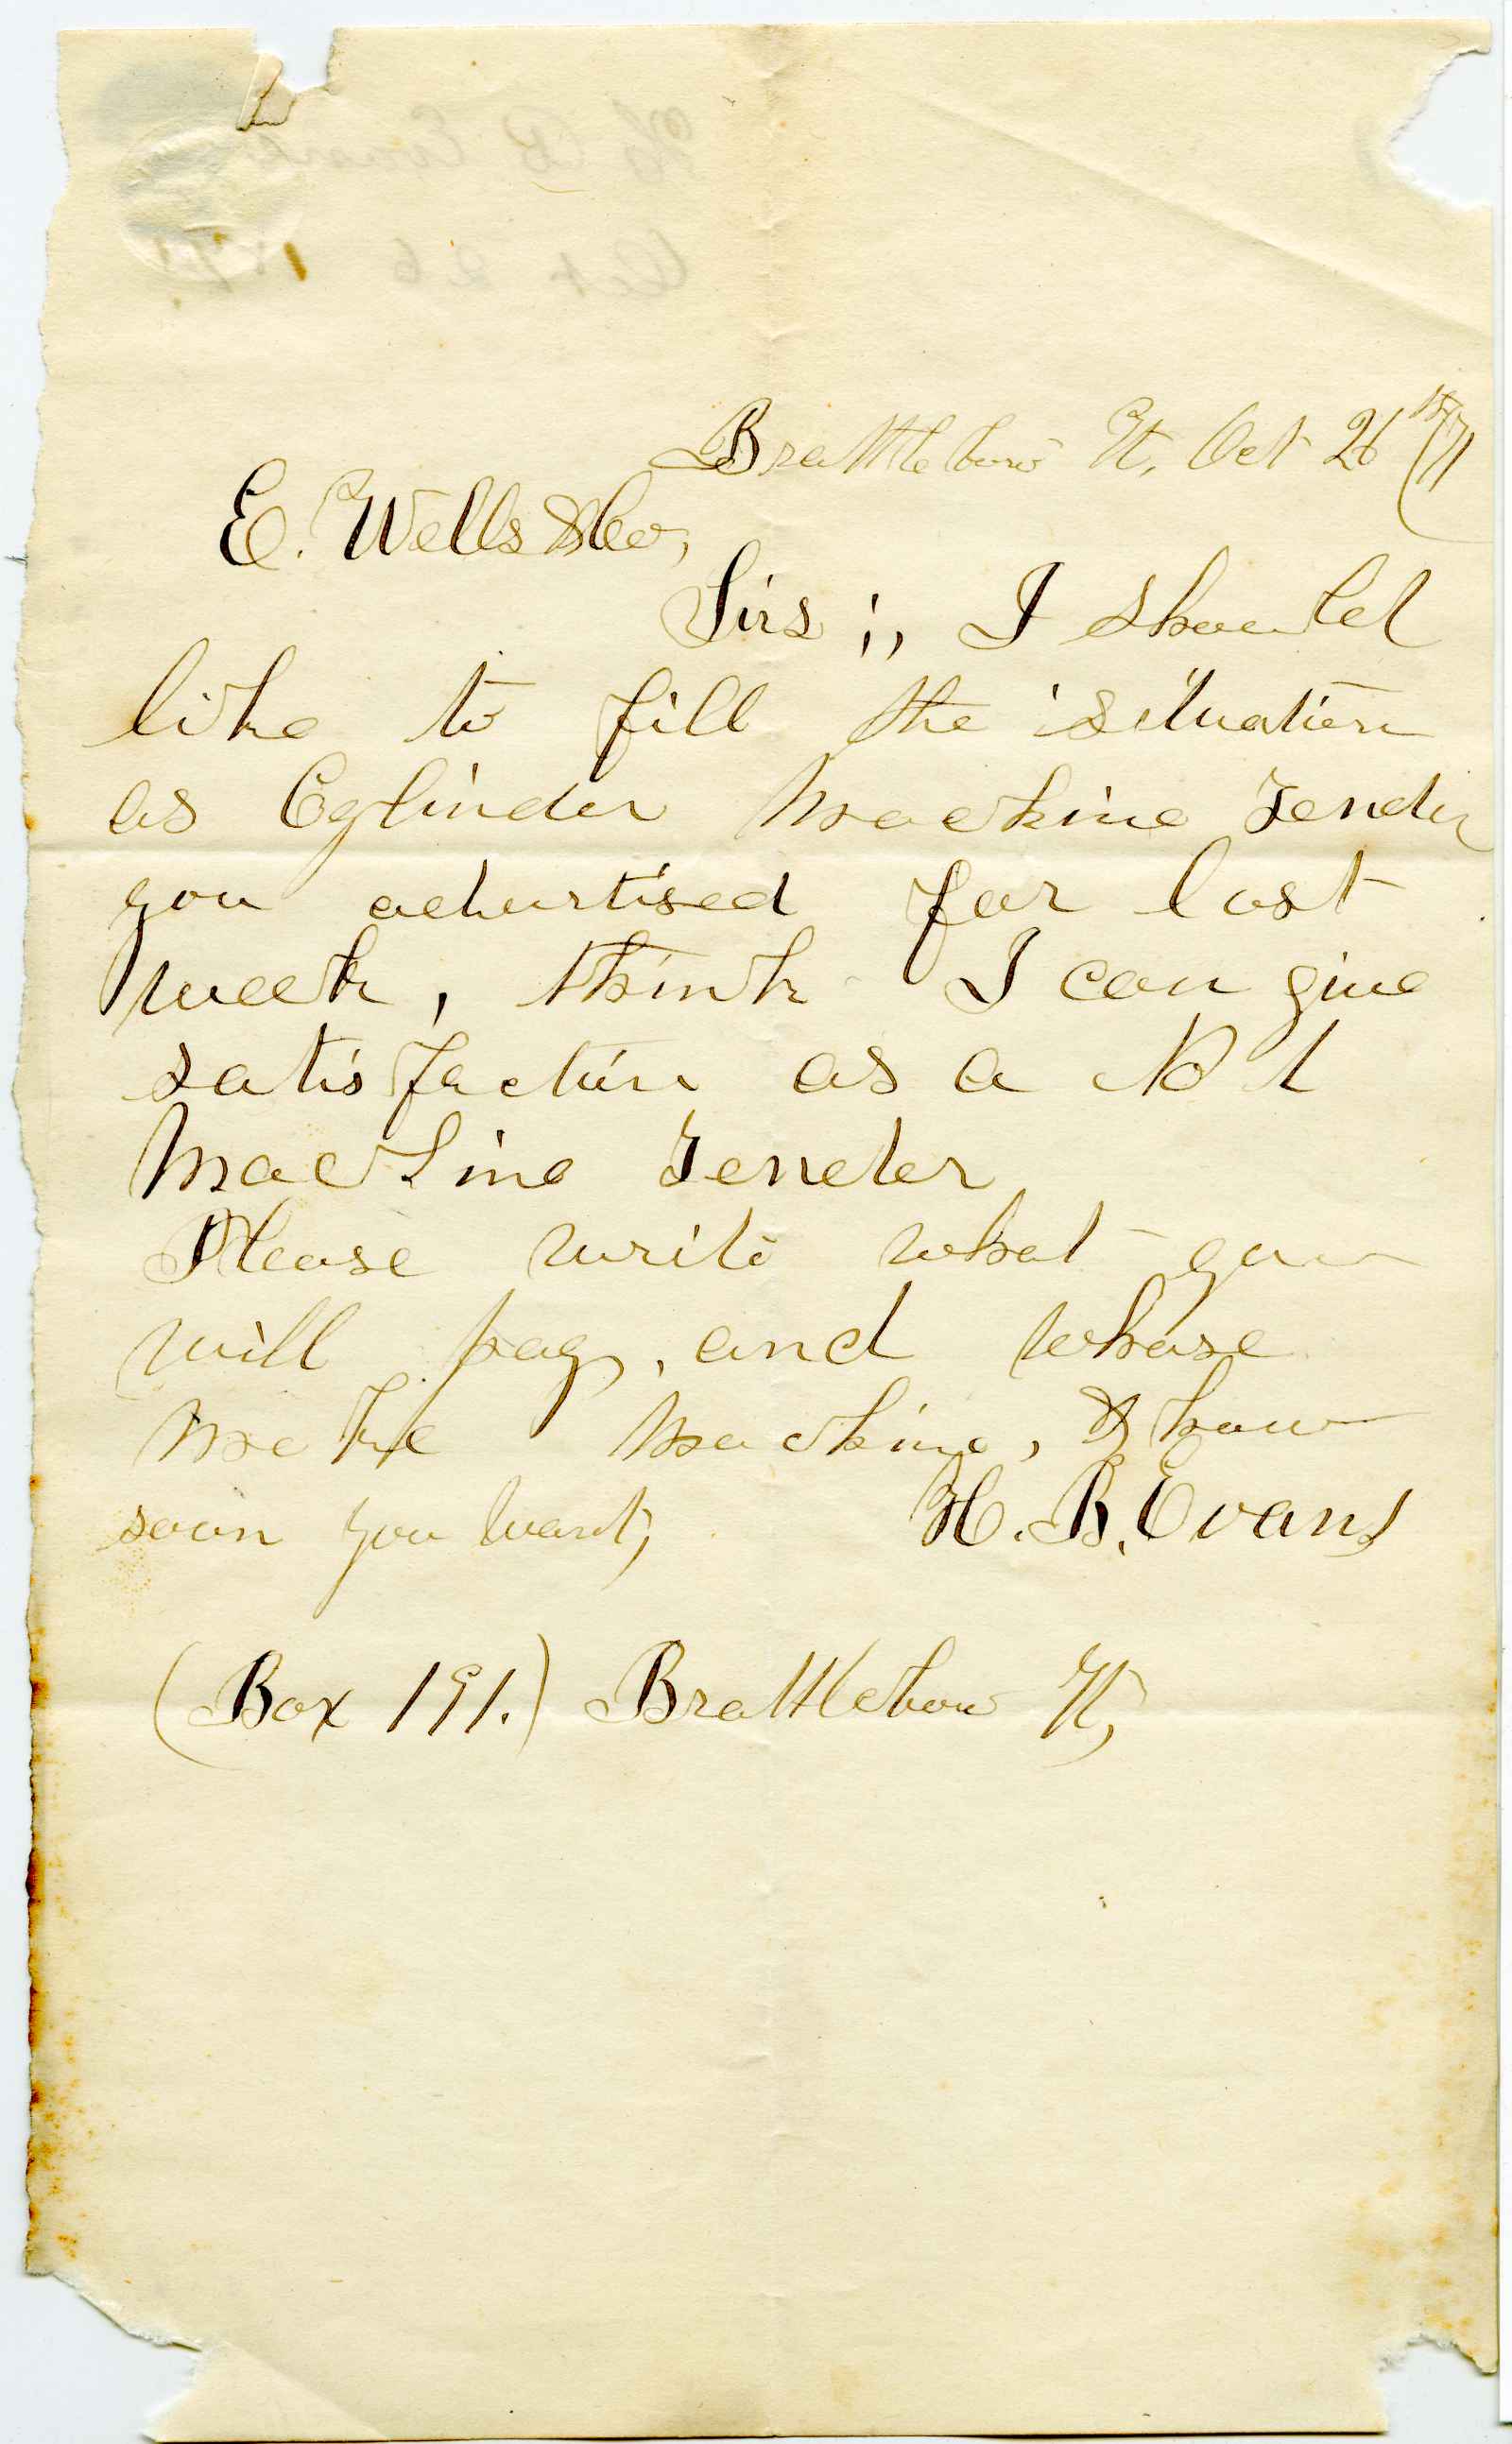 Brattleboro Vt, Oct 26th/71
E. Wells & Co,
Sirs ;, I should
like to fill the situation
as Cylinder Machine Tender
you advertised for last
week, think I can give
satisfaction as a No 1
Machine Tender
Please write what you
will pay, and whose
make Machine, & how
soon you want,
H. B. Evans
(Box 191.) Brattleboro Vt,